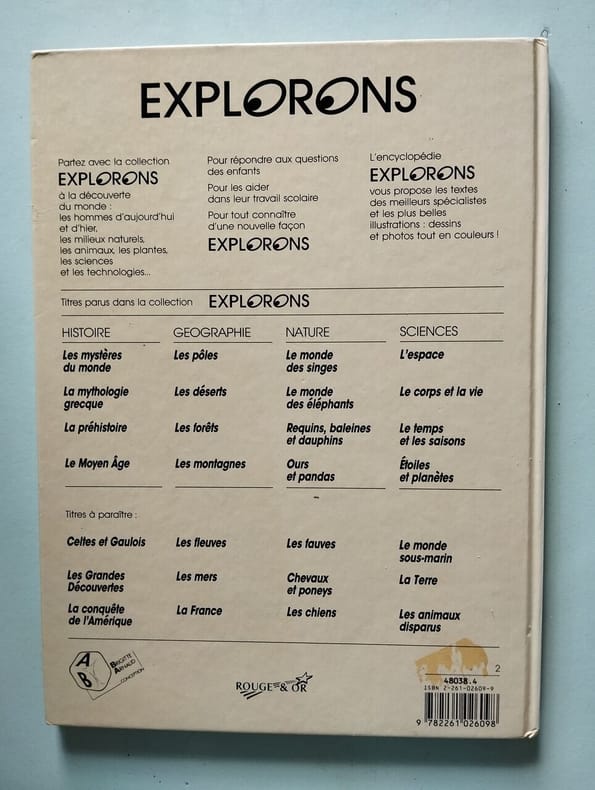 EXPLORONS
Partez avec la collection
EXPLORONS
à la découverte
du monde :
les hommes d'aujourd'hui
et d'hier,
les milieux naturels,
les animaux, les plantes,
les sciences
et les technologies...
Pour répondre aux questions
des enfants
Pour les aider
dans leur travail scolaire
Pour tout connaître
d'une nouvelle façon
EXPLORONS
L'encyclopédie
EXPLORONS
vous propose les textes
des meilleurs spécialistes
et les plus belles
illustrations : dessins
et photos tout en couleurs !
Titres parus dans la collection EXPLORONS
HISTOIRE
Les mystères
du monde
La mythologie
grecque
La préhistoire
Le Moyen Âge
GEOGRAPHIE
Les pôles
Les déserts
Les forêts
Les montagnes
NATURE
Le monde
des singes
Le monde
des éléphants
Requins, baleines
et dauphins
Ours
et pandas
SCIENCES
L'espace
Le corps et la vie
Le temps
et les saisons
Étoiles
et planètes
Titres à paraître :
Celtes et Gaulois
Les Grandes
Découvertes
La conquête
de l'Amérique
Les fleuves
Les mers
La France
Les fauves
Chevaux
et poneys
Les chiens
Le monde
sous-marin
La Terre
Les animaux
disparus
AB
BRIGITTE
ARNAUD
CONCEPTION
ROUGE & OR
2
48038.4
ISBN 2-261-02609-9
9 782261 026098